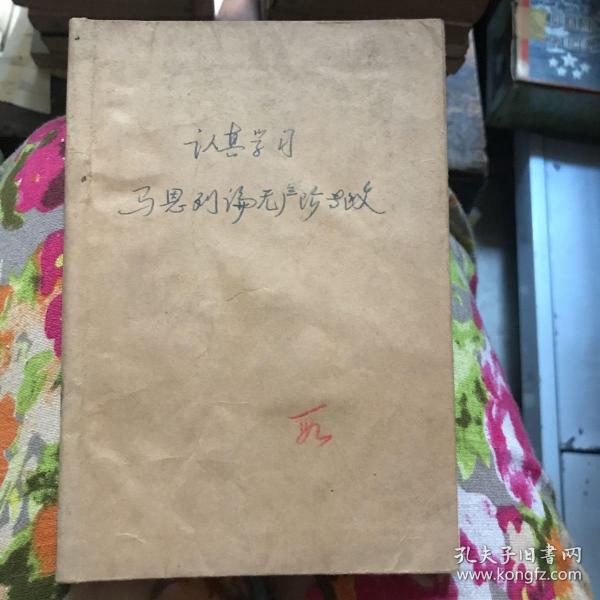 认真学习
马恩列论无产阶专政
孔夫子旧書网
www.kongfz.com